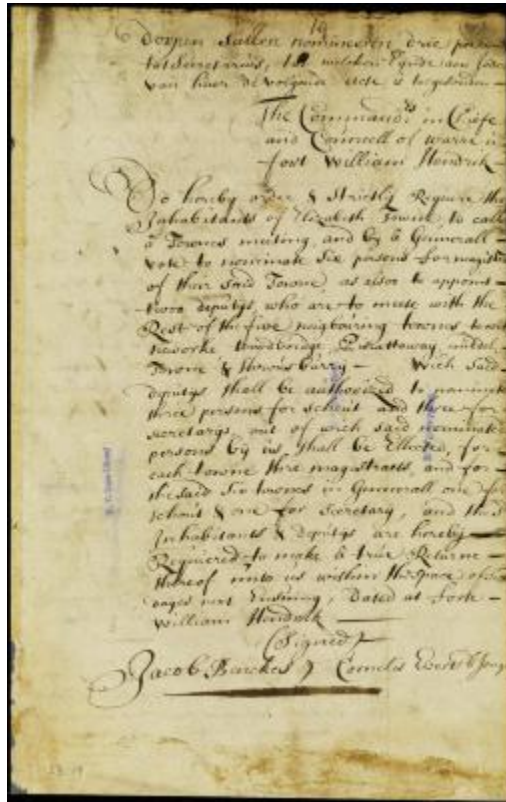 19
dorpen sullen nomineeren drie persoo
tot Secretarius, tot welcken Eynde aen
van haer de volgende acte is toegesonden
The Commandrs in Chiefe
and Councell of warre in
fort William Hendrik
Do hereby order & Strictly Require the
Inhabitants of Elizabeth Towne, to call
a Townes meeting, and by a Generall
vote to nominate Six persons for magistr
of their said Towne, as also to appoint
two deputys, who are to meete with the
Rest of the five neigbouring townes to wit
neworke woodbridge, Piscattaway, middel
Towne & Shrousburry — Wich said
deputys shall be authorized to nominate
three persons for schout and three for
secretarys, out of wich said nominated
persons by us shall be Ellected, for
each towne thre magistrats, and for
the said Six townes in Generall one for
schout & one for Secretary, and the sd
Inhabitants & deputys are hereby
Required to make a true Returne
thereof unto us within the space of
dayes next Ensuing, Dated at forte
William Hendrik
(Signed)
Jacob Benckes, Cornelis Everts de Jong